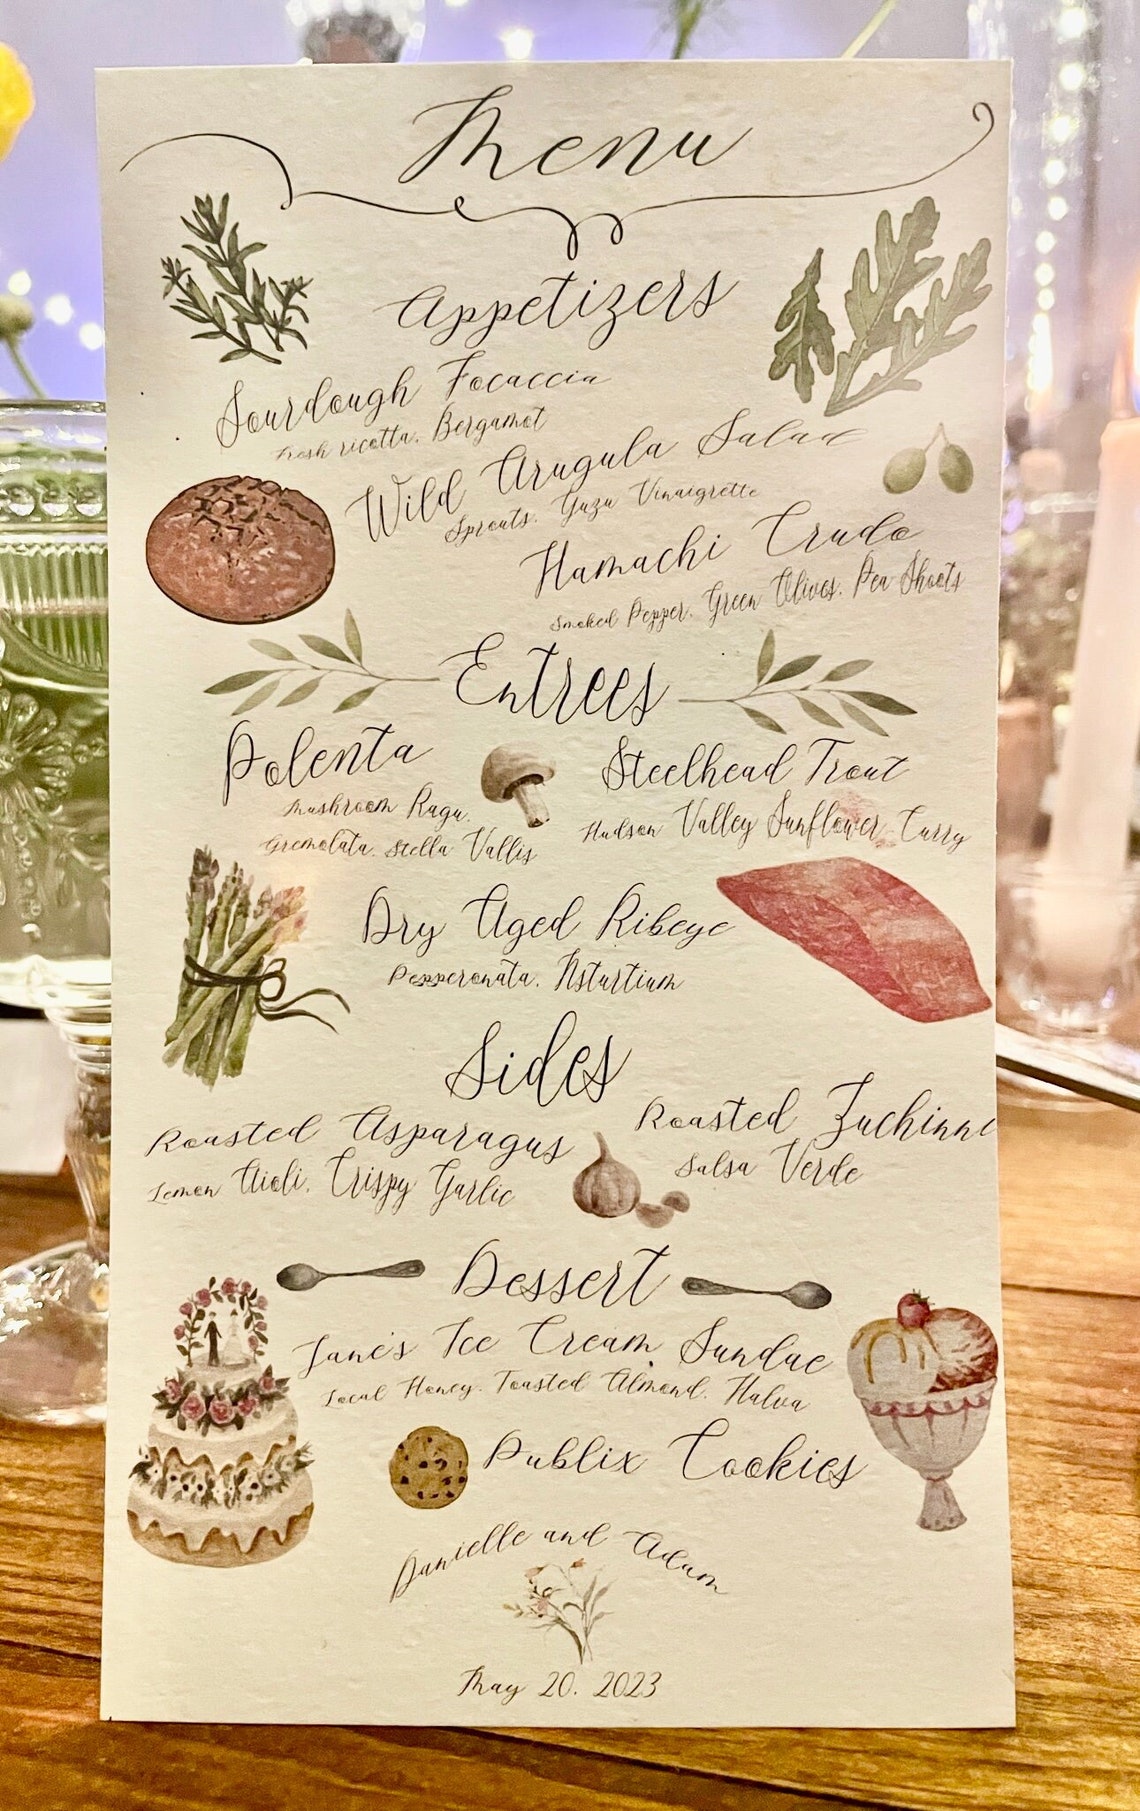 Menu
Appetizers
Sourdough Focaccia
Fresh ricotta, Bergamot
Wild Arugula Salad
Sprouts, Yuzu Vinaigrette
Hamachi Crudo
Smoked Pepper, Green Olives, Pea Shoots
Entrees
Polenta
Mushroom Ragu,
Gremolata, Stella Vallis
Steelhead Trout
Hudson Valley Sunflower, Curry
Dry Aged Ribeye
Pepperonata, Nsturtium
Sides
Roasted Asparagus
Lemon Aioli, Crispy Garlic
Roasted Zuchinni
Salsa Verde
Dessert
Jane's Ice Cream Sundae
Local Honey, Toasted Almond, Halva
Publix Cookies
Danielle and Adam
May 20, 2023